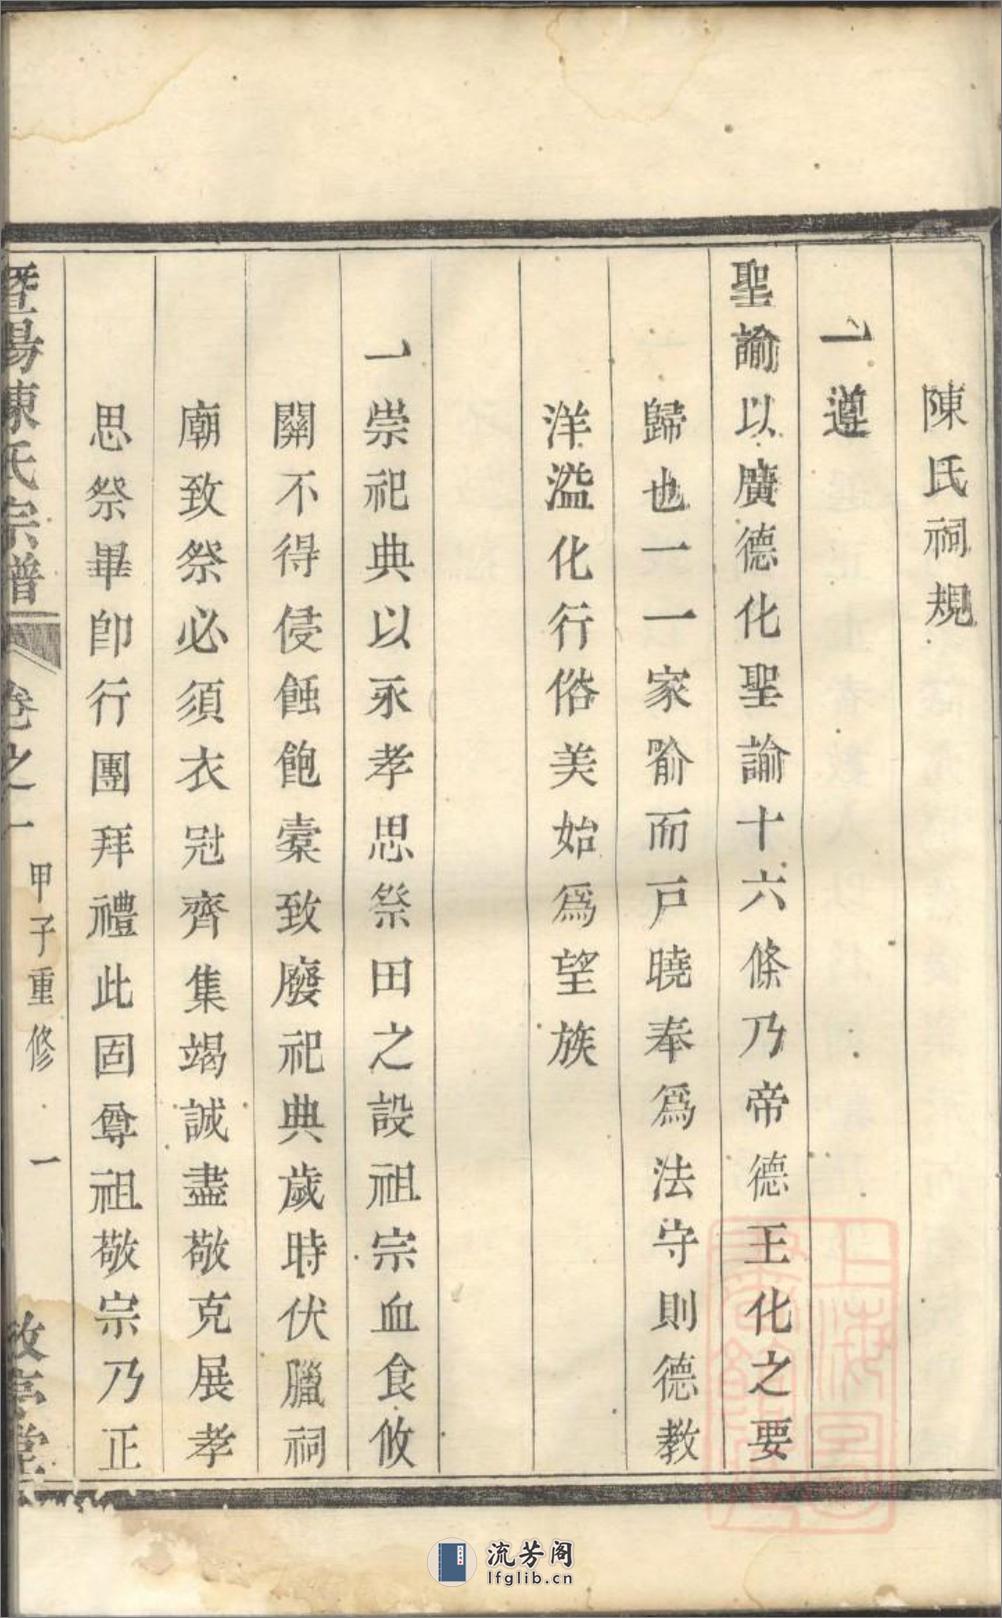 陳氏祠規
一遵
聖諭以廣德化聖諭十六條乃帝德王化之要
歸也一一家喻而戸曉奉爲法守則德教
洋溢化行俗美始爲望族
一崇祀典以永孝思祭田之設祖宗血食攸
關不得侵蝕飽橐致廢祀典歲時伏臘祠
廟致祭必須衣冠齊集竭誠盡敬克展孝
思祭畢卽行團拜禮此固尊祖敬宗乃正
暨陽陳氏宗譜 卷之一 甲子重修 一
流芳阁
lfglib.cn